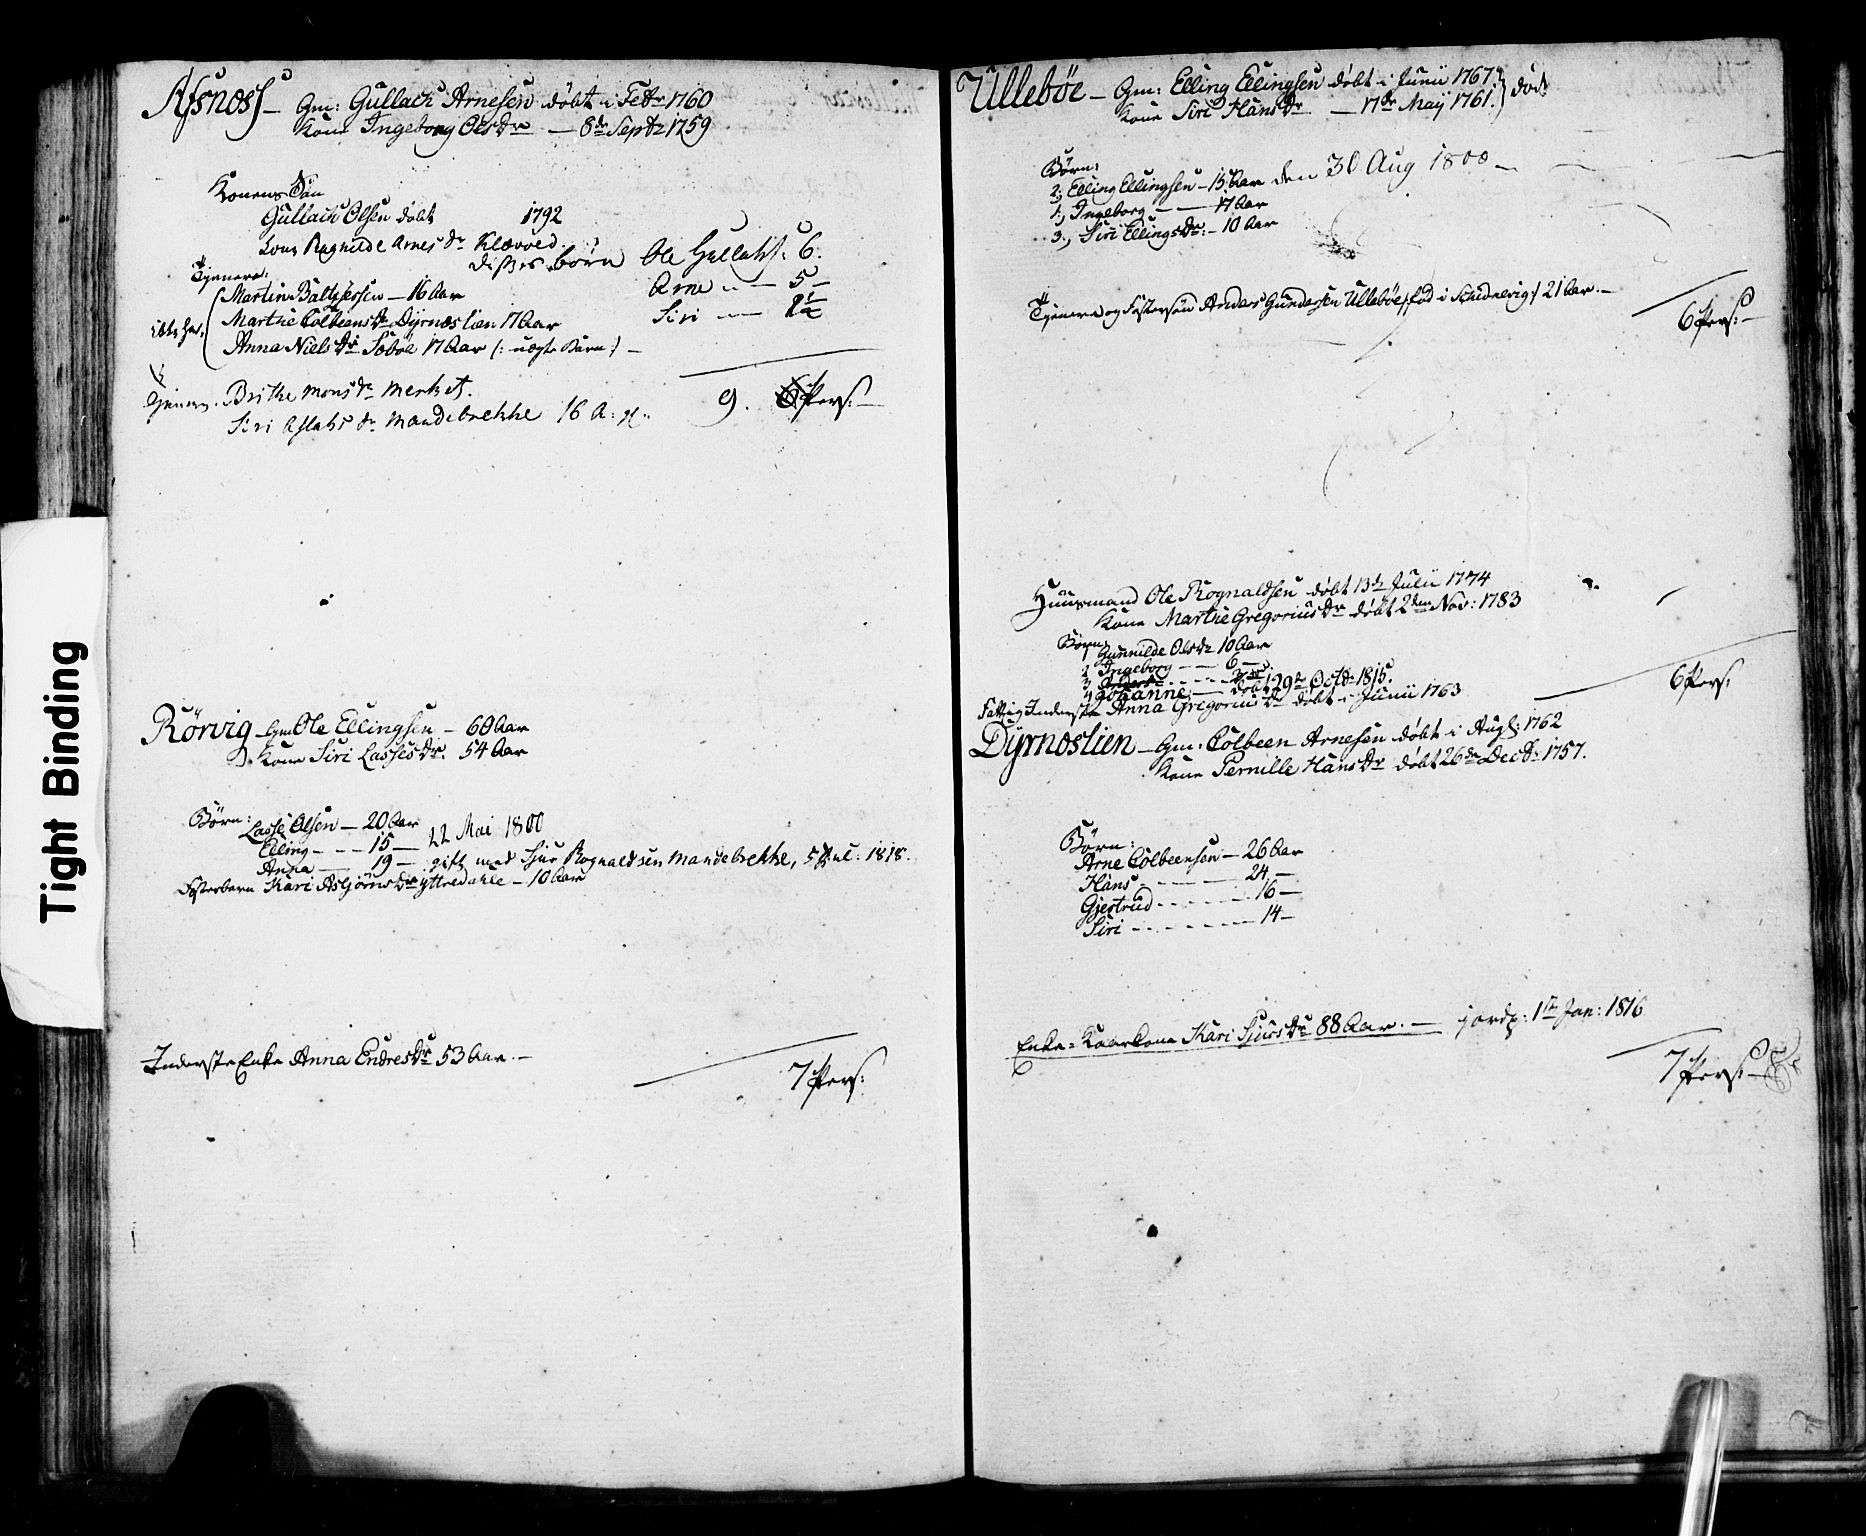 Tight Binding
Asnæss – Gm: Gullach Arnesen døbt i Febr 1760
Kone Ingeborg Olsdr – 8de Septr 1759
Konens Sön
Gullach Olsen døbt 1792
Kone Ragnilde Arnesdr Klævold
disses börn Ole Gullachs: 6.
Arne – 5 –
Siri – 1½
Tjenere:
Martin Baltzersen – 16 Aar
Marthe Colbeensdr Dyrnæslien 17 Aar
ikke her.
Anna Nielsdr Søbøe 17 Aar (: uægte Barn :) –
Tjenere. Brithe Monsdr Merket.
Siri Aslaksdr Mandebrekke 16 A: gl.
9. 6 Pers: –
Rörvig – Gm Ole Ellingsen – 60 Aar
Kone Siri Lassesdr. 54 Aar
Börn:
Lasse Olsen – 20 Aar
Elling – – – 15 – 22 Mai 1800
Anna – 19 – gift med Sjur Rognaldsen Mandebrekke, 5 Jul: 1818.
Fosterbarn Kari Asbjørnsdr Yttredahle – 10 Aar
Inderste Enke Anna Endresdr 53 Aar. –
7 Pers:
Ullebøe – Gm: Elling Ellingsen døbt i Junii 1767
Kone Siri Hansdr – 17de Maÿ 1761. } död
Börn:
2, Elling Ellingsen – 15 Aar den 30 Aug 1800 –
1, Ingeborg – – 17 Aar
3, Siri Ellingsdr: – 10 Aar
Tjenere og Fostersön Anders Gundersen Ullebøe /: fød i Schidnevig :/ 21 Aar. –
6 Pers: –
Huusmand Ole Rognaldsen døbt 13de Julii 1774
Kone Marthe Gregoriusdr døbt 2den Nov: 1783
Börn
Gunnilde Olsdr 10 Aar
2 Ingeborg – – 6 –
3
4 Johanne – døbt 29de Octbr 1815.
Fattig Inderste Anna Gregoriusdr døbt i Junii 1763
6 Pers:
Dyrnæslien – Gm: Colbeen Arnesen døbt i Aug: 1762
Kone Pernille Hansdr døbt 26de Decbr 1757.
Börn:
Arne Colbeensen – 26 Aar
Hans – – – – 24 –
Gjertrud – – – – 16 –
Siri – – – – 14 –
Enke = Kaarkone Kari Sjursdr 88 Aar. – jordp: 1ste Jan: 1816
7 Pers: –